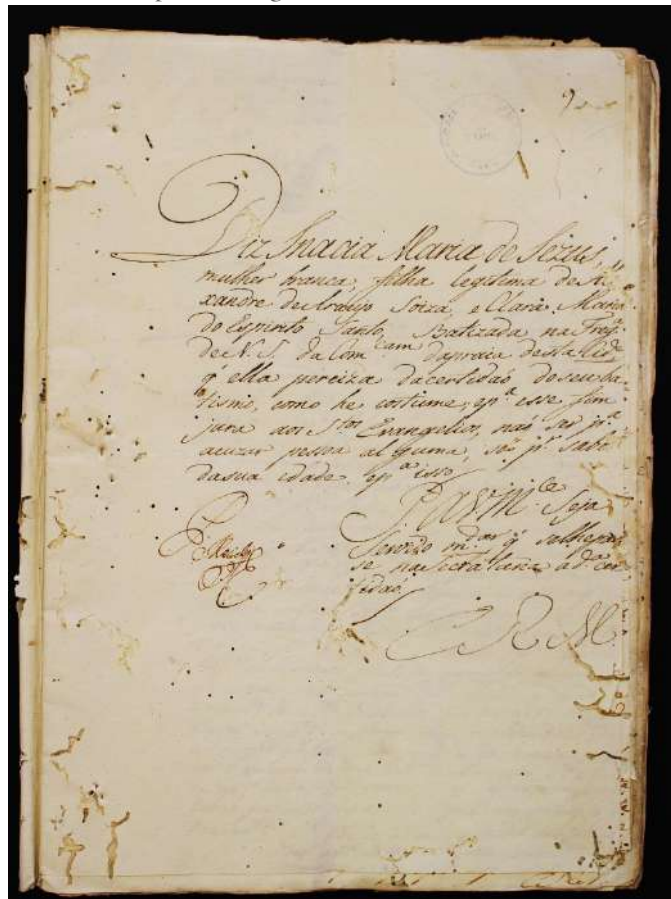 9
Diz Inacia Maria de Jezus,
mulher branca, filha legitima de A
xandre de Araujo Soiza, e Clara Maria
do Espirito Santo, Batizada na Freg.ª
de N. S. da Com cam dapraia desta Cid.e
q̃ ella perciza dacertidaõ doseu ba
tismo, como he costume, ep.ª esse fim
jura aos S.tos Evangelios, naõ ser p.ª
acuzar pessoa alguma, só p.ª saber
dasua idade, ep.ª isso
P. a V. M.ce Seja
Servido m.dar q̃ selhepas
se na Secretaria a d.ª cer
tidaõ
E R M